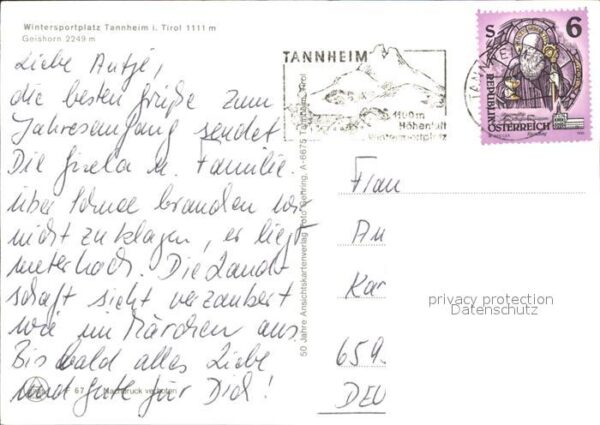 Wintersportplatz Tannheim i. Tirol 1111 m
Geishorn 2249 m
Liebe Antje,
die besten Grüße zum
Jahresanfang sendet
Dir Gisela u. Familie.
Über Schnee brauchen wir
nicht zu klagen, er liegt
meterhoch. Die Land-
schaft sieht verzaubert
wie im Märchen aus.
Bis bald alles Liebe
und Gute für Dich!
67 Nachdruck verboten
50 Jahre Ansichtskartenverlag Foto Gehring, A-6675 Tannheim, Tirol
TANNHEIM
1100m
Höhenluft
Wintersportplatz
TANNHEIM
S 6
REPUBLIK
ÖSTERREICH
Frau
An
Kar
659
DEU
privacy protection
Datenschutz